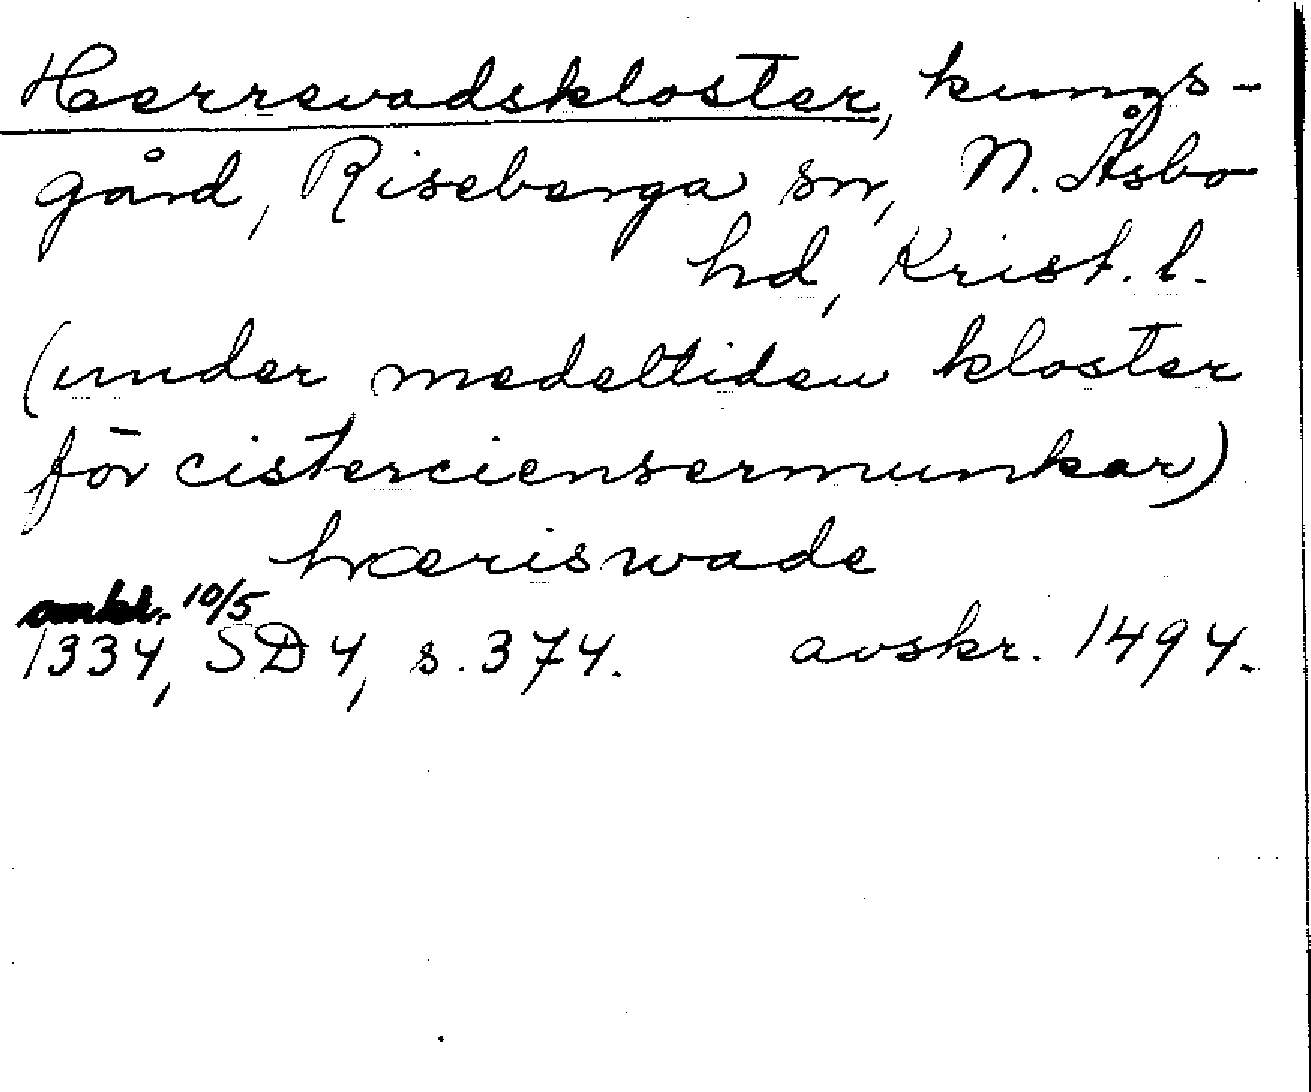 Herrevadskloster, kungs-
gård, Riseberga sn, N. Åsbo
hd, Krist. l.
(under medeltiden kloster
för cisterciensermunkar)
hæriswade
10/5
1334, SD 4, s. 374. avskr. 1494.